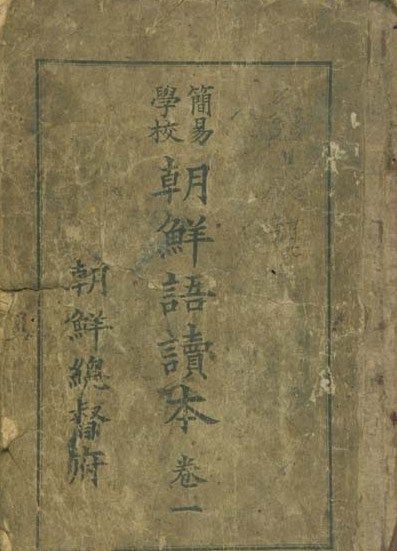 簡易
學校
朝鮮語讀本 卷一
朝鮮總督府